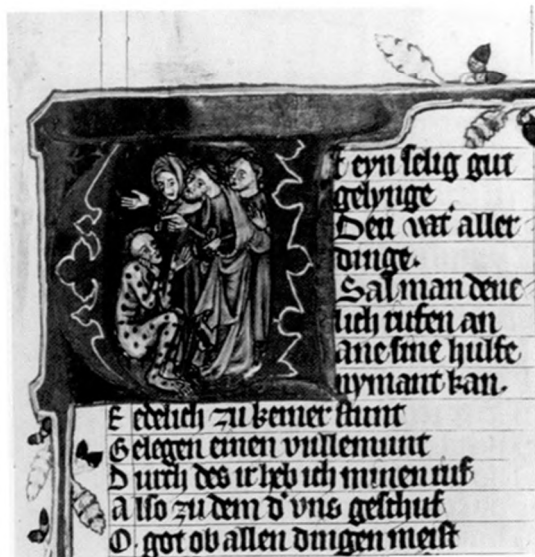 t eyn selig gut
gelynge
Den vat' aller
dinge.
Sal man deue
lich rufen an
ane sine hulfe
nymant kan.
E edelich zu keiner stunt
Gelegen einen vullemunt
Durch des ir heb ich minen ruf
Also zu dem d' vns geschuf
O got ob allen dingen meist